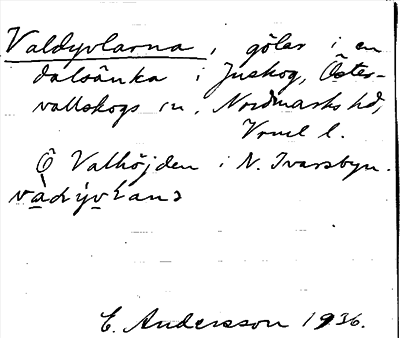 Valdyvlarna, gölar i en
dalsänka i Juskog, Öster-
vallskogs sn, Nordmarks hd,
Vrml l.
Ö Valhöjden i N. Ivarsbyn.
E. Andersson 1936.